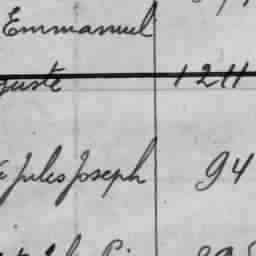 Emmanuel
guste 1211
Jules Joseph 94